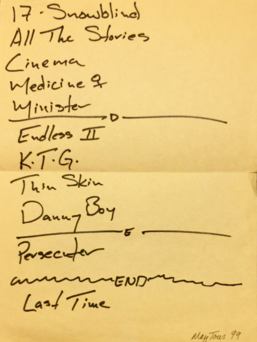 17. Snowblind
All The Stories
Cinema
Medicine &
Minister
D
Endless II
K.T.G.
Thin Skin
Danny Boy
E
Persecuter
END
Last Time
May Tour 99